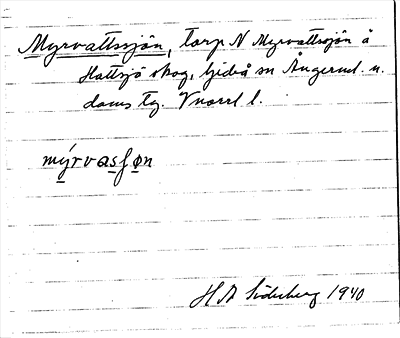 Myrvattssjön, torp N Myrvattssjön å
Hattsjö skog, Gideå sn Ångerml. n.
doms tg. Vnorrl l.
mýrvasʃøn
H A Söderberg 1940